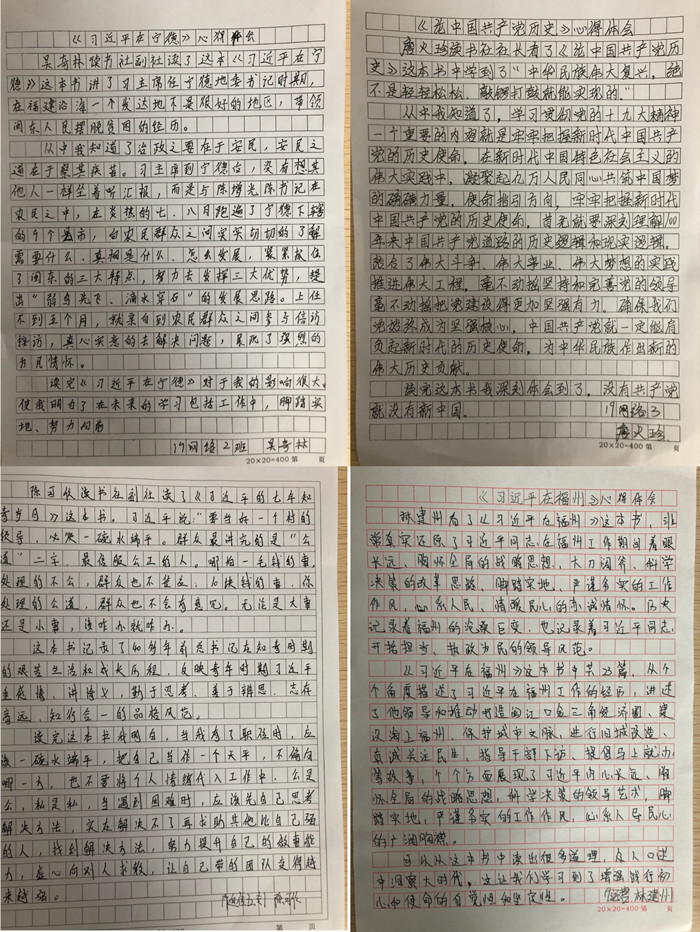 《习近平在宁德》心得体会
吴奇林读书社副社读了这本《习近平在宁
德》这本书讲了习主席任宁德地委书记时期,
在福建沿海一个发达地不是很好的地区,带领
闽东人民摆脱贫困的经历。
从中我知道了治政之要在于安民,安民之
道在于察其疾苦。习主席到宁德后,没有想其
他人一样坐着听汇报,而是与陈增光陈书记在
农民之中,在炎热的七、八月跑遍了宁德下辖
的9个县市,向农民群众之间实实切切的了解
需要什么、真相是什么、怎么发展,紧紧抓住
了闽东的三大特点,努力去发挥三大优势,提
出“弱鸟先飞、滴水穿石”的发展思路。上任
不到三个月,就亲自到农民群众之间参与信访
接访,真心实意的去解决问题,展现了强烈的
为民情怀。
读完《习近平在宁德》对于我的影响很大。
使我明白了在未来的学习包括工作中,脚踏实
地、努力向前
19网络2班 吴奇林
20×20=400 第 页
《论中国共产党历史》心得体会
詹火珍读书社社长看了《论中国共产党历
史》这本书中学到了“中华民族伟大复兴,绝
不是轻轻松松、敲锣打鼓就能实现的。”
从中我知道了,学习贯彻党的十九大精神
一个重要的内容就是牢牢把握新时代中国共产
党的历史使命,在新时代中国特色社会主义的
伟大实践中,凝聚起亿万人民同心共筑中国梦
的磅礴力量。使命指引方向,牢牢把握新时代
中国共产党的历史使命,首先就要深刻理解100
年来中国共产党道路的历史逻辑和现实逻辑。
统合了伟大斗争、伟大事业、伟大梦想的实践
推进伟大工程。毫不动摇坚持和完善党的领导
毫不动摇把党建设得更加坚强有力。确保我们
党始终成为坚强核心,中国共产党就一定能肩
负起新时代的历史使命,为中华民族作出新的
伟大历史贡献。
读完这本书我深刻体会到了,没有共产党
就没有新中国。 19网络3
詹火珍
20×20=400 第 页
陈习从读书社副社读了《习近平的七年知
青岁月》这本书。习近平说:“要当好一个村的
领导,必定一碗水端平。群众最讲究的是“公
道”二字,最信服公正的人。哪怕一毛钱的事,
处理的不公,群众也不答应,10块钱的事,你
处理的公道,群众也不会有意见。无论是大事
还是小事,该咋办就咋办。
这本书记录了40多年前总书记在知青时期
的艰苦生活和成长历程,反映青年时期习近平
重感情、讲情义,勤于思考、善于辨思、志存
高远、知行合一的品格风范。
读完这本书我明白,当我有了职位时,应
该一碗水端平,把自己当作一个天平,不偏向
哪一方,也不要将个人情绪代入工作中,公是
公,私是私,当遇到困难时,应该先自己思考
解决方法,实在解决不了再求助其他比自己强
的人,找到解决方法,努力提升自己的做事能
力,虚心向别人求教,让自己带的团队变得越
来越强。
第 页
《习近平在福州》心得体会
林建州看了《习近平在福州》这本书,非
常真实还原了习近平同志在福州工作期间着眼
长远、胸怀全局的战略思想,大刀阔斧、科学
决策的改革思路,脚踏实地、严谨务实的工作
作风,心系人民、情暖民心的赤诚情怀。历史
记录着福州的沧桑巨变,也记录着习近平同志
开拓担当、执政为民的领导风范。
《习近平在福州》这本书中共25篇,从个
个角度描述了习近平在福州工作的经历,讲述
了他领导和推动打造闽江口金三角经济圈、建
设海上福州、保护城中文脉、进行旧城改造、
真诚关注民生、指导干部下访、提倡马上就办
等故事,个个方面展现了习近平内心长远、胸
怀全局的战略思想,科学决策的领导艺术,脚
踏实地,严谨务实的工作作风,心系人民民心
的广阔胸襟。
可以从这本书中读出很多道理,在人口述
中洞察大时代,这让我们学习到了增强践行初
心和使命的自觉性和坚定性。 林建州
20×20=400 第 页